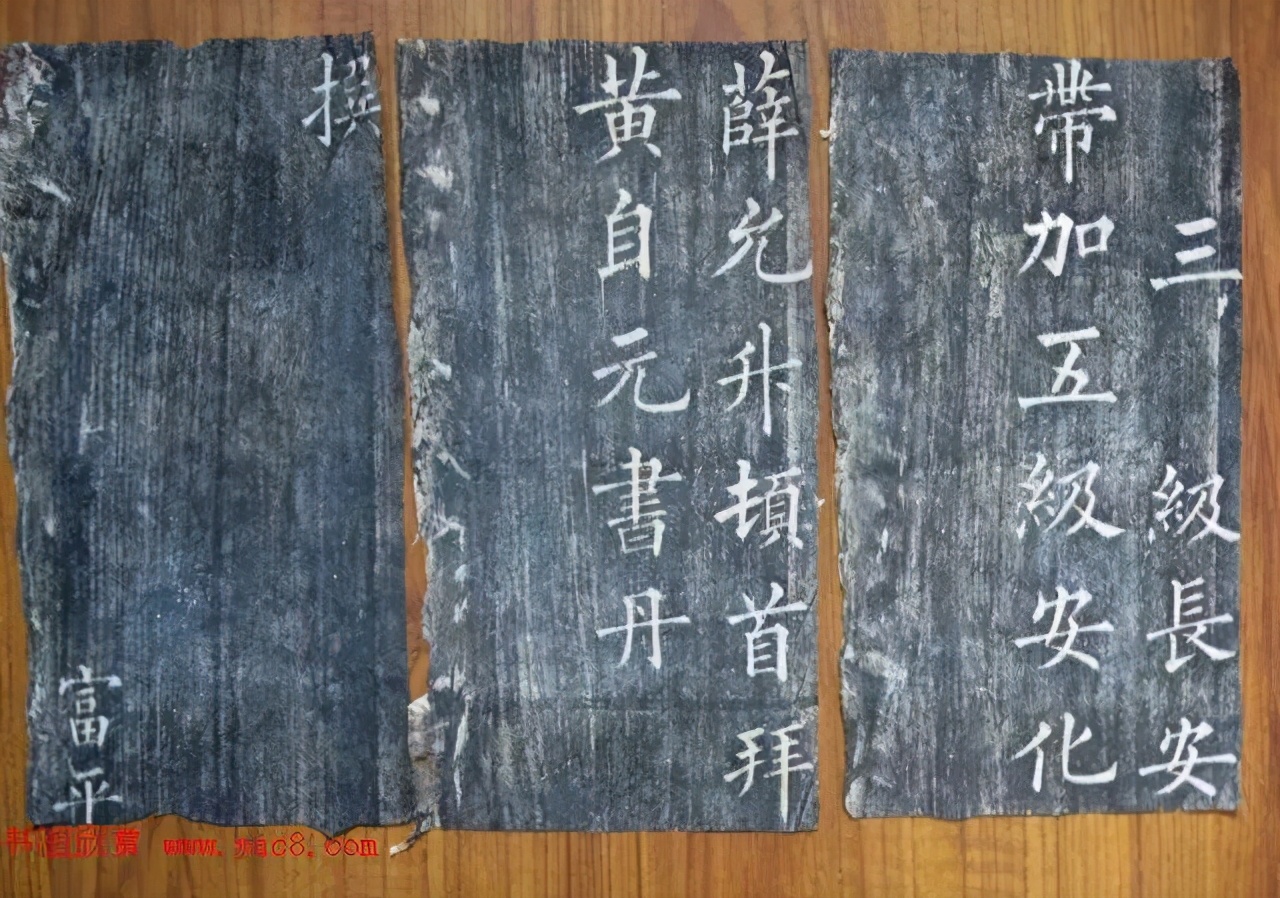 三級長安
帶加五級安化
薛允升頓首拜
黃自元書丹
撰
富平
书法欣赏 www.yac8.com